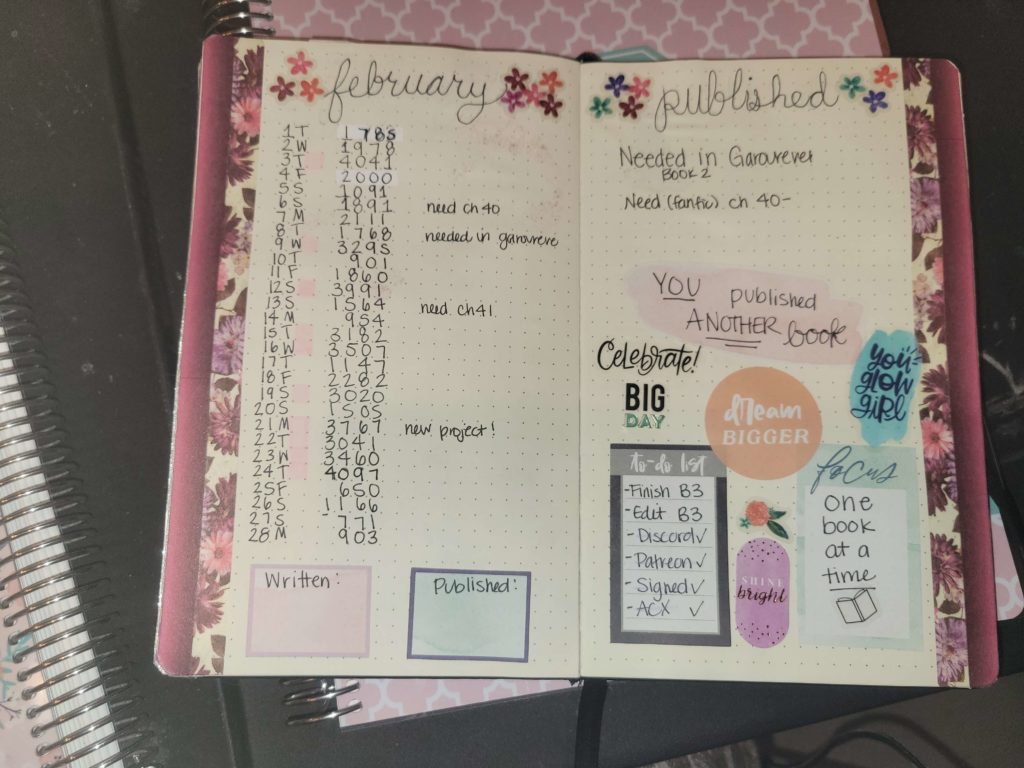 february
1 T 1785
2 W 1978
3 T 4041
4 F 2000
5 S 1091
6 S 1891 need ch 40
7 M 2111
8 T 1768 needed in garoureve
9 W 3295
10 T 901
11 F 1860
12 S 3991
13 S 1564 need ch41
14 M 954
15 T 3182
16 W 3507
17 T 1147
18 F 2282
19 S 3020
20 S 1505
21 M 3767 new project!
22 T 3041
23 W 3460
24 T 4097
25 F 650
26 S 1166
27 S 771
28 M 903
Written:
Published:
published
Needed in Garourever
BOOK 2
Need (fanfic) ch 40-
YOU published
ANOTHER book
Celebrate!
BIG
DAY
dream
BIGGER
you
glow
girl
to-do list
-Finish B3
-Edit B3
-Discord✓
-Patreon✓
-Signed✓
-ACX ✓
SHINE
bright
focus
one
book
at a
time